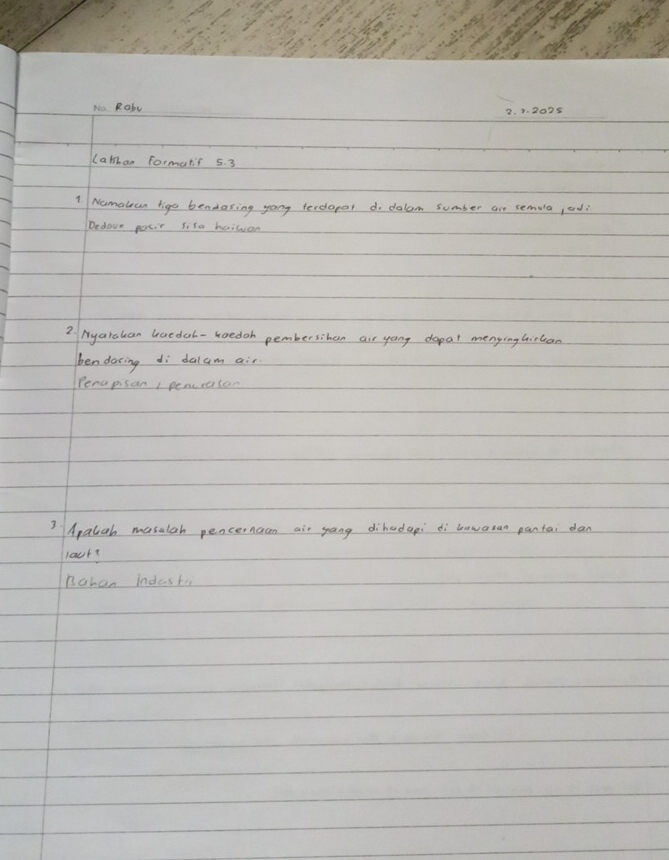 No. Rabu
2.7.2025
Latihan Formatif 5.3
1. Namakan tiga bendasing yang terdapat di dalam sumber air semula jadi
Dedaun pasir sisa haiwan
2. Nyatakan kaedah-kaedah pembersihan air yang dapat menyingkirkan
bendasing di dalam air.
Penapisan, penurasan
3. Apakah masalah pencernaan air yang dihadapi di kawasan pantai dan
laut?
Bahan industri